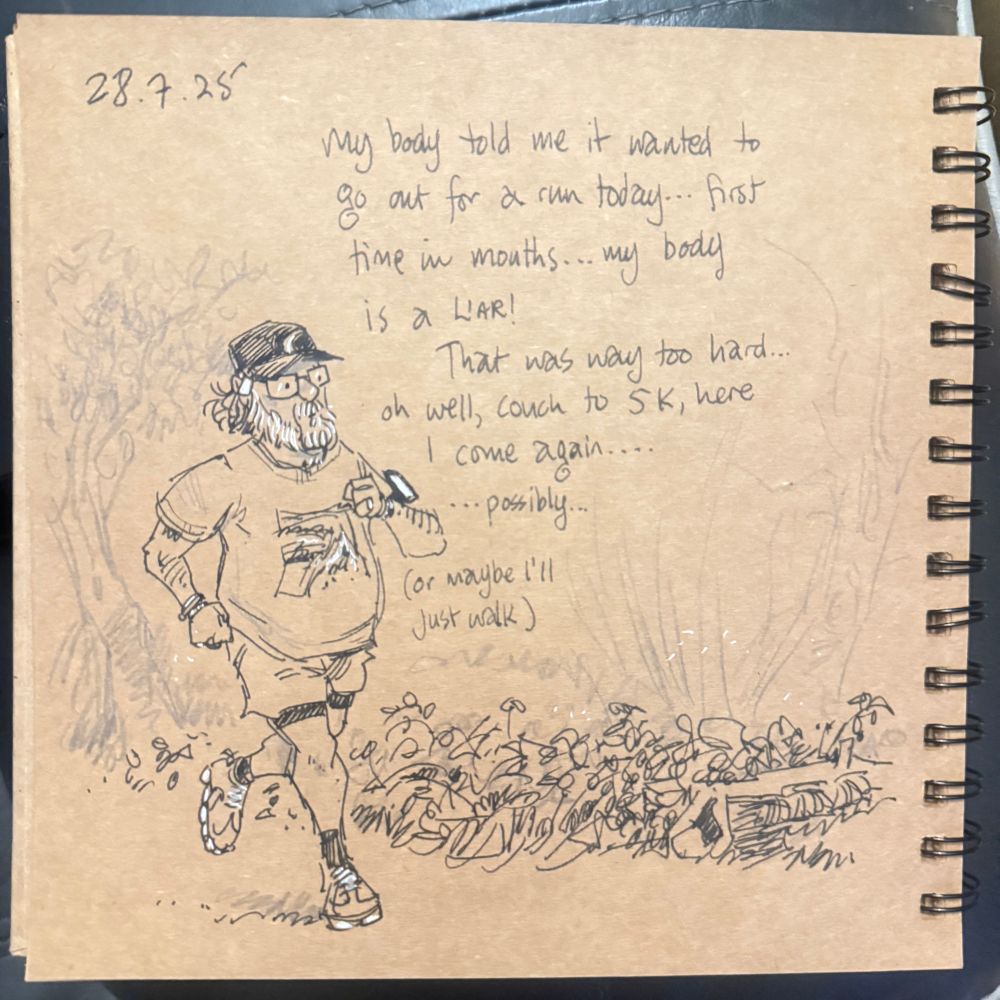 28.7.25
My body told me it wanted to
go out for a run today... first
time in months... my body
is a LIAR!
That was way too hard...
oh well, couch to 5K, here
I come again....
...possibly...
(or maybe I'll
just walk)